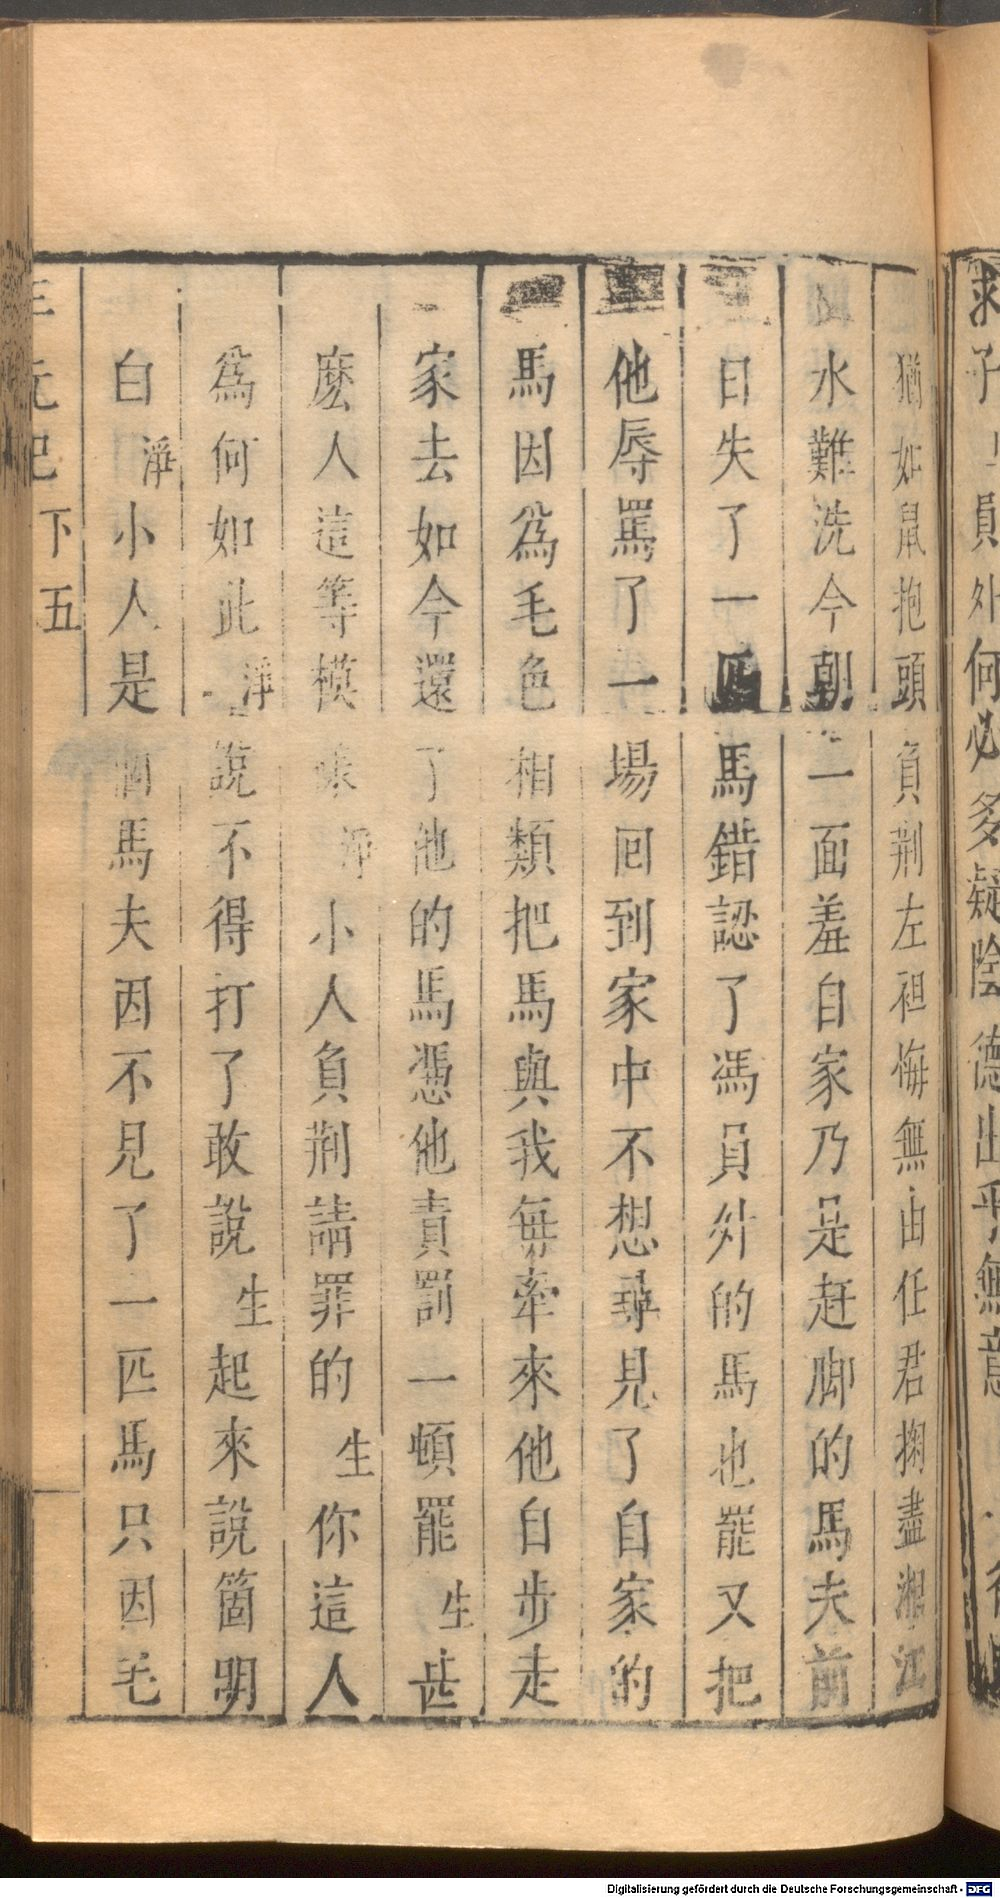 猶如鼠抱頭負荆左袒悔無由任君掬盡湘江
水難洗今朝一面羞自家乃是赶脚的馬夫前
日失了一匹馬錯認了馮員外的馬也罷又把
他辱罵了一場回到家中不想尋見了自家的
馬因爲毛色相類把馬與我毎牽來他自步走
家去如今還了他的馬憑他責罰一頓罷生甚
麽人這等模樣淨小人負荆請罪的生你這人
爲何如此淨說不得打了敢說生起來說箇明
白淨小人是個馬夫因不見了一匹馬只因毛
三元記
下
五
求子
員外何必多疑陰德出乎無意
Digitalisierung gefördert durch die Deutsche Forschungsgemeinschaft - DFG